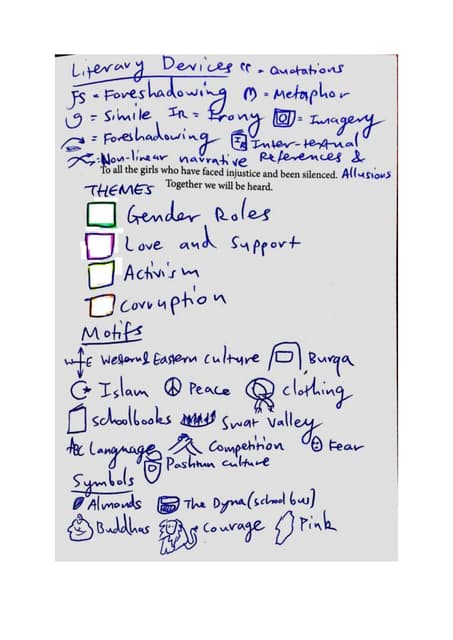 Literary Devices " = Quotations
FS = Foreshadowing M = Metaphor
S = Simile IR = Irony = Imagery
= Foreshadowing IR Inter-textual
: Non-linear narrative References &
To all the girls who have faced injustice and been silenced. Allusions
Together we will be heard.
THEMES
Gender Roles
Love and Support
Activism
Corruption
Motifs
W E Western & Eastern Culture Burqa
Islam Peace Clothing
Schoolbooks Swat Valley
ABC Language Competition Fear
Pashtun Culture
Symbols
Almonds The Dyna (school bus)
Buddhas Courage Pink